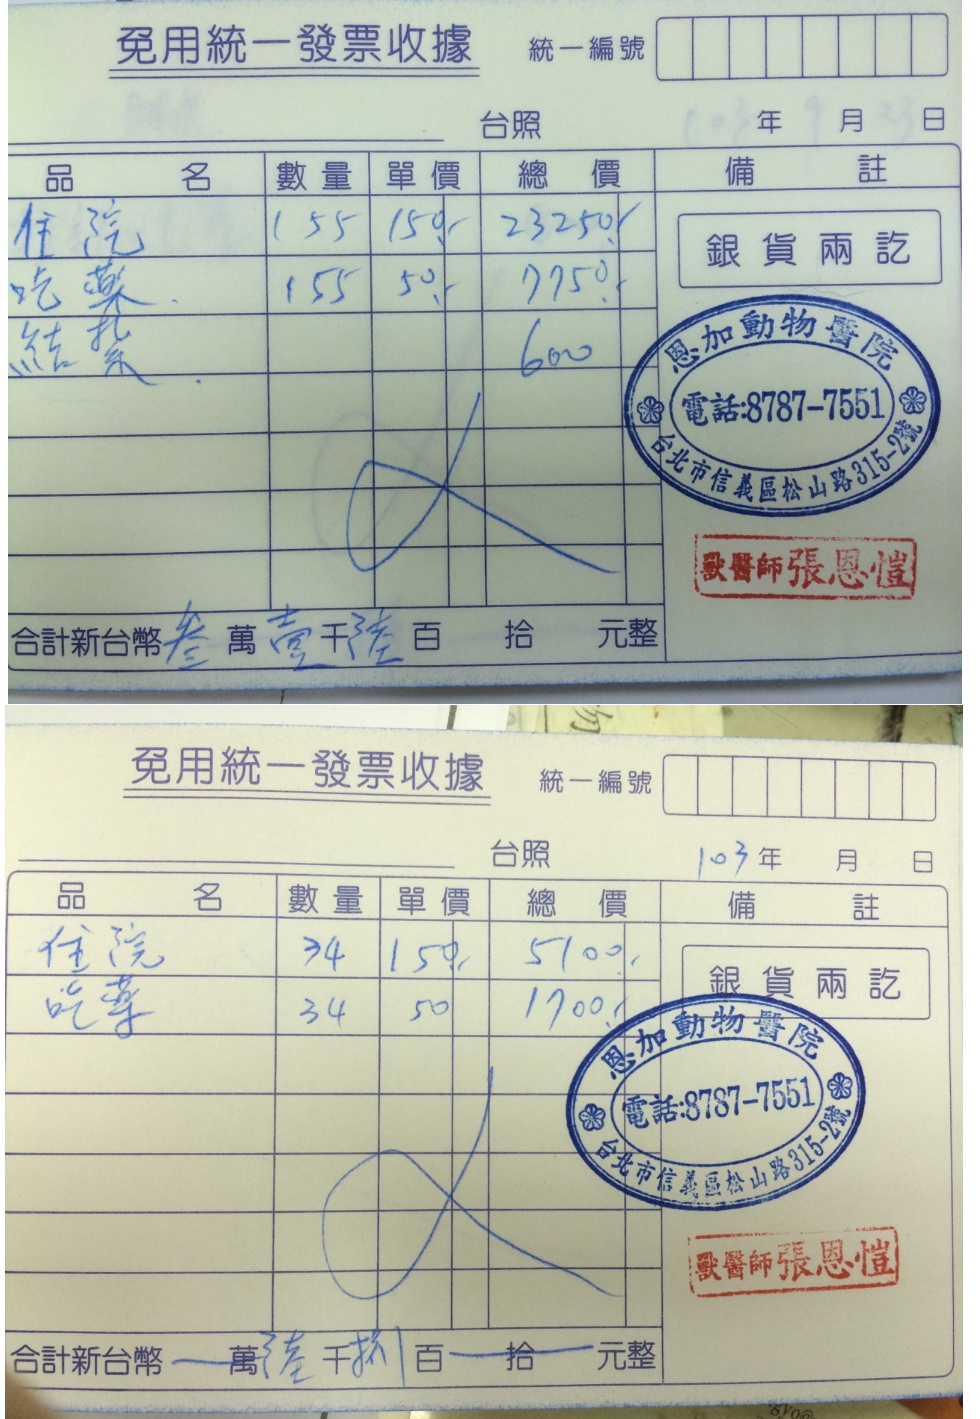 免用統一發票收據 統一編號
台照 103年9月23日
品名 數量 單價 總價 備註
住院 155 150.- 23250.-
銀貨兩訖
吃藥. 155 50.- 7750.-
結紮. 600
恩加動物醫院
電話:8787-7551
台北市信義區松山路315-2號
獸醫師張恩愷
合計新台幣叁萬壹千陸百 拾 元整
免用統一發票收據 統一編號
台照 103年 月 日
品名 數量 單價 總價 備註
住院 34 150.- 5100.-
銀貨兩訖
吃藥 34 50 1700.-
恩加動物醫院
電話:8787-7551
台北市信義區松山路315-2號
獸醫師張恩愷
合計新台幣一萬陸千捌百一拾一元整